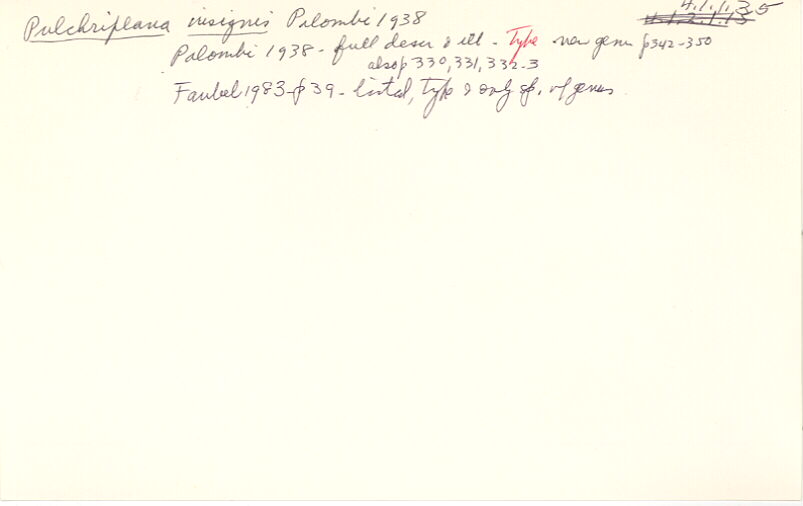 4.1.1.35
Pulchriplana insignis Palombi 1938
Palombi 1938 - full descr & ill - Type new genu p342-350
also p 330, 331, 332-3
Faubel 1983 - p 39 - listed, type & only sp. of genus